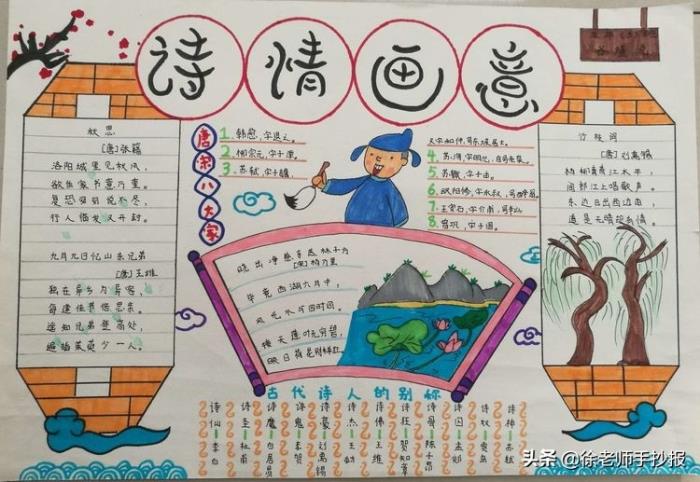 诗情画意
秋思
[唐]张籍
洛阳城里见秋风，
欲作家书意万重。
复恐匆匆说不尽，
行人临发又开封。
九月九日忆山东兄弟
[唐]王维
独在异乡为异客，
每逢佳节倍思亲。
遥知兄弟登高处，
遍插茱萸少一人。
唐宋八大家
1.韩愈，字退之。
2.柳宗元，字子厚。
3.苏轼，字子瞻，
又字和仲，号东坡居士。
4.苏洵，字明允，
5.苏辙，字子由。
6.欧阳修，字永叔，号醉翁
7.王安石，字介甫，号半山
8.曾巩，字子固。
晓出净慈寺送林子方
[宋]杨万里
毕竟西湖六月中，
风光不与四时同。
接天莲叶无穷碧，
映日荷花别样红。
竹枝词
[唐]刘禹锡
杨柳青青江水平，
闻郎江上唱歌声。
东边日出西边雨，
道是无晴却有晴。
古代诗人的别称
诗仙—李白
诗圣—杜甫
诗魔—白居易
诗鬼—李贺
诗豪—刘禹锡
诗杰—王勃
诗佛—王维
诗狂—贺知章
诗骨—陈子昂
诗囚—孟郊
诗奴—贾岛
诗神—苏轼
头条 @徐老师手抄报